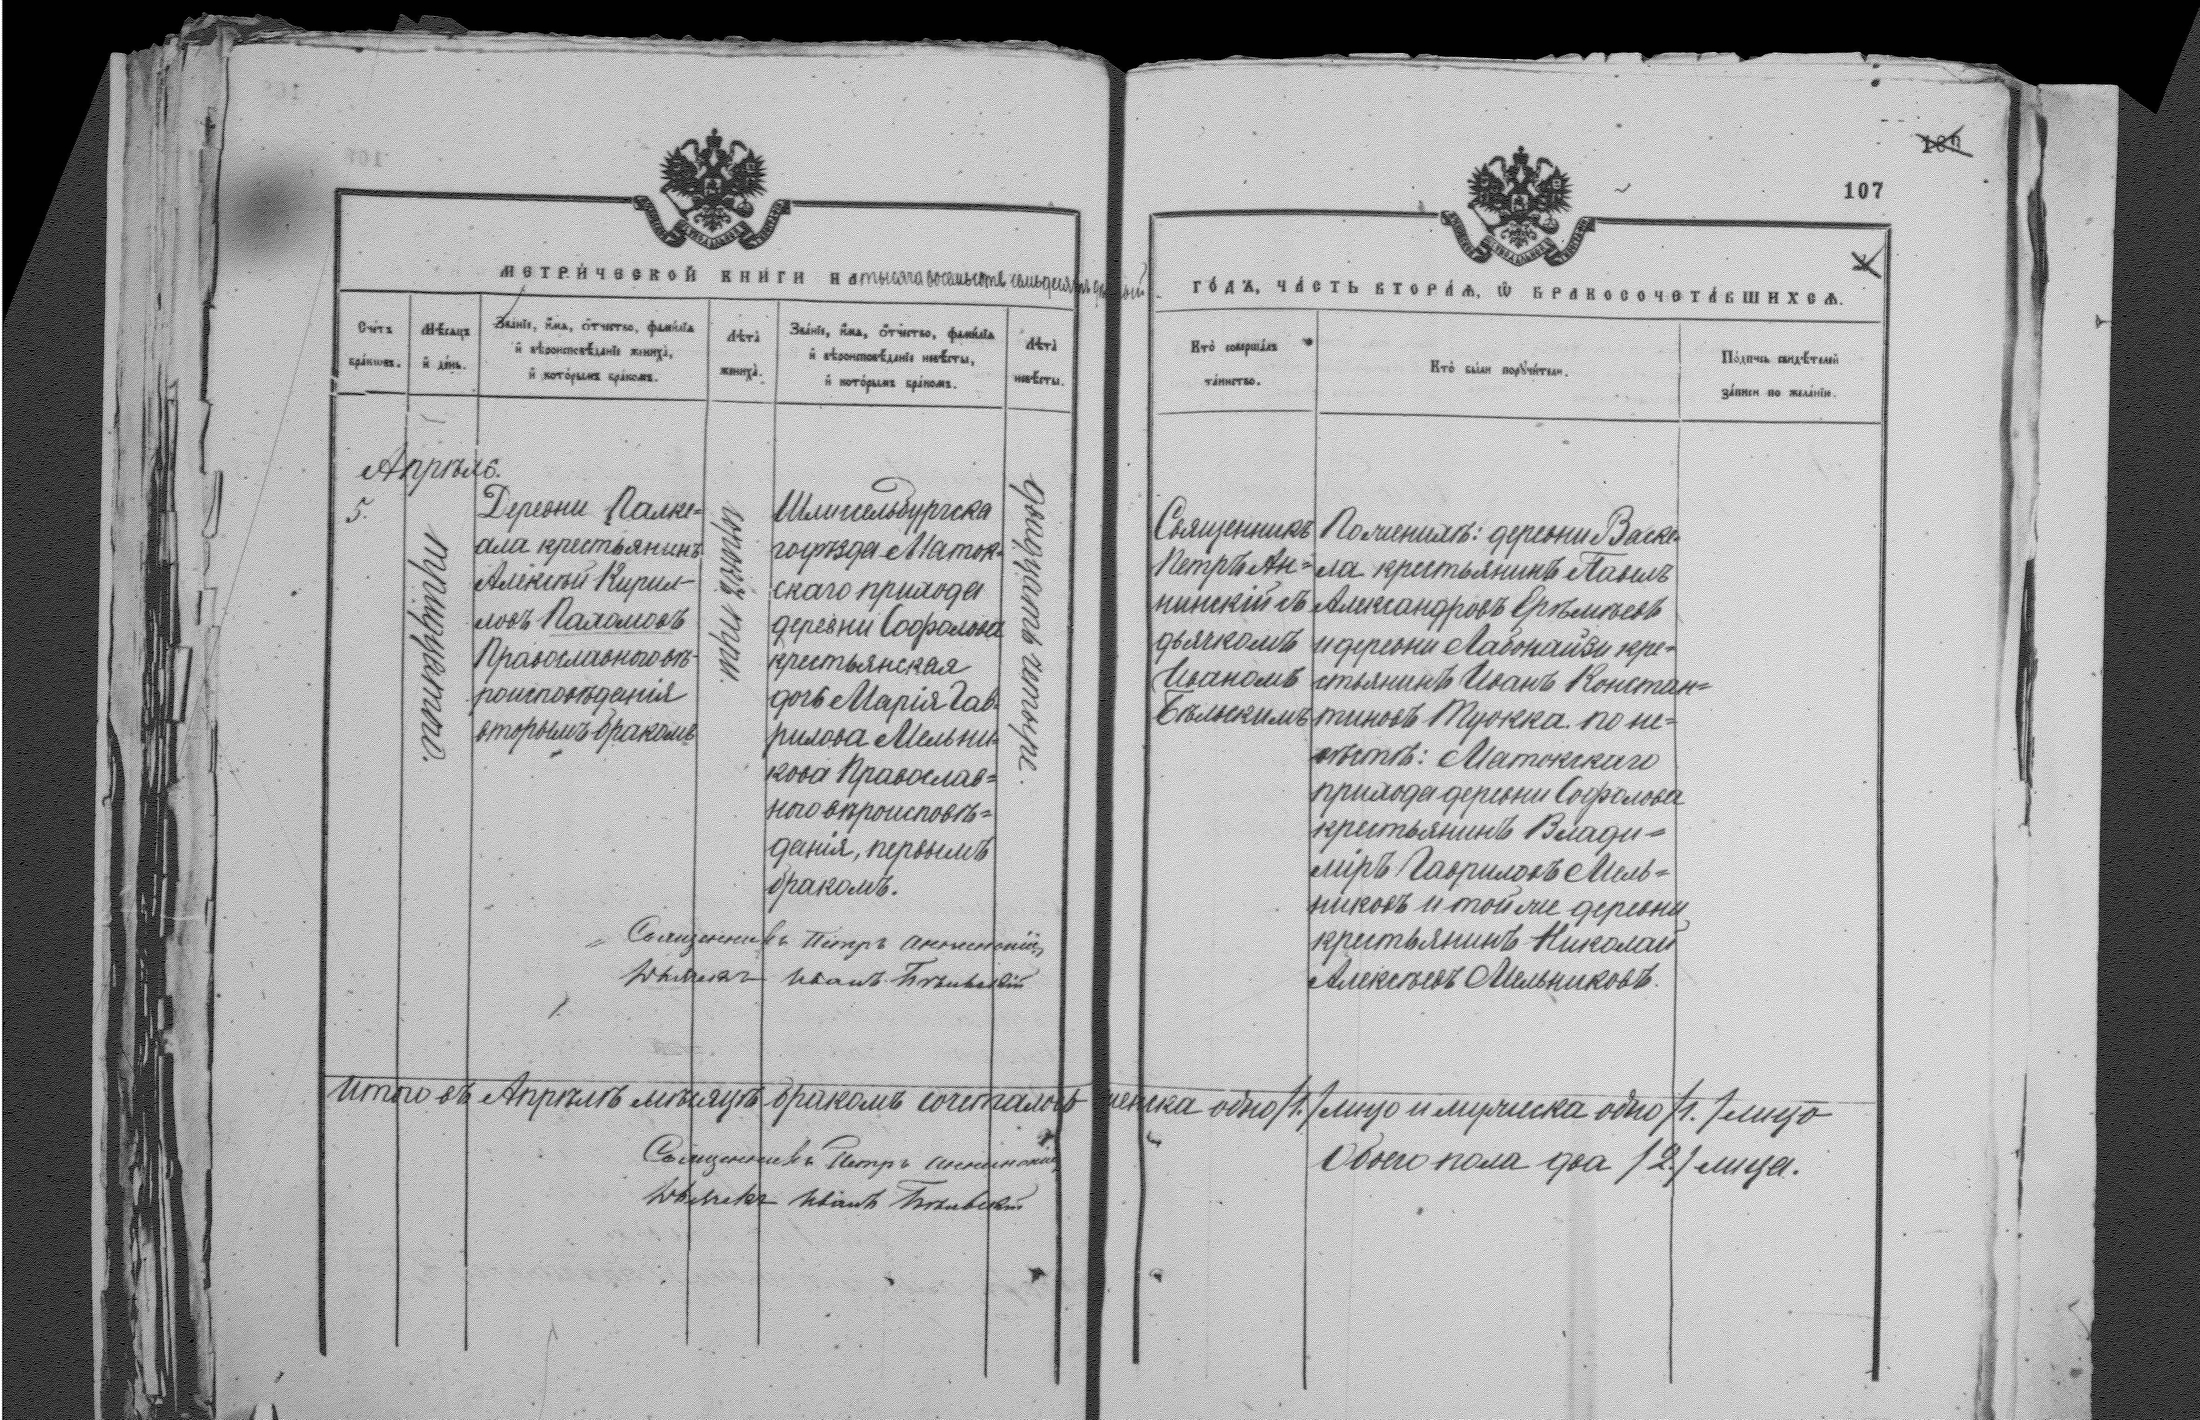 107
МЕТРИ́ЧЕСКОЙ КНИ́ГИ НА тысяча восемьсотъ семьдесятъ
ГО́ДЪ, ЧА́СТЬ ВТОРА́Я, Ѿ БРАКОСОЧЕТА́ВШИХСЯ.
Сче́тъ бра́ковъ.
Мѣ́сяцъ и де́нь.
Зва́нїе, и́мя, о́тчество, фами́лїя
и вѣроисповѣ́данїе жениха̀,
и кото́рымъ бра́комъ.
Лѣта̀ жениха̀.
Зва́нїе, и́мя, о́тчество, фами́лїя
и вѣроисповѣ́данїе невѣ́сты,
и кото́рымъ бра́комъ.
Лѣта̀ невѣ́сты.
Кто̀ соверша́лъ
та́инство.
Кто̀ бы́ли поручи́тели.
По́дпись свидѣ́телей
за́писи по жела́нїю.
Апрѣль.
5.
тринадцатаго.
Деревни Палке=
ала крестьянинъ
Алексѣй Кирил-
ловъ Пахомовъ
Православнаго вѣ-
роисповѣданія
вторымъ бракомъ
тридцать три.
Шлиссельбургска
го уѣзда Маток-
скаго прихода
деревни Софолова
крестьянская
дочь Марія Гав-
рилова Мельни-
кова Православ=
наго вѣроисповѣ=
данія, первымъ
бракомъ.
двадцать четыре.
Священникъ
Петръ Ан=
нинскій съ
дьячкомъ
Иваномъ
Бѣльскимъ
По женихѣ: деревни Васке-
ла крестьянинъ Павелъ
Александровъ Ерѣмѣевъ
и деревни Лавонайзи кре=
стьянинъ Иванъ Констан=
тиновъ Туокка. по не=
вѣстѣ: Матокскаго
прихода деревни Софолова
крестьянинъ Влади=
міръ Гавриловъ Мель=
никовъ и той же деревни
крестьянинъ Николай
Алексѣевъ Мельниковъ.
Священникъ Петръ Аннинскій
Дьячекъ Иванъ Бѣльскій
Итого въ Апрѣлѣ мѣсяцѣ бракомъ сочеталось женска одно /1./ лицо и мужеска одно /1./ лицо
Обоего пола два /2./ лица.
Священникъ Петръ Аннинскій
Дьячекъ Иванъ Бѣльскій